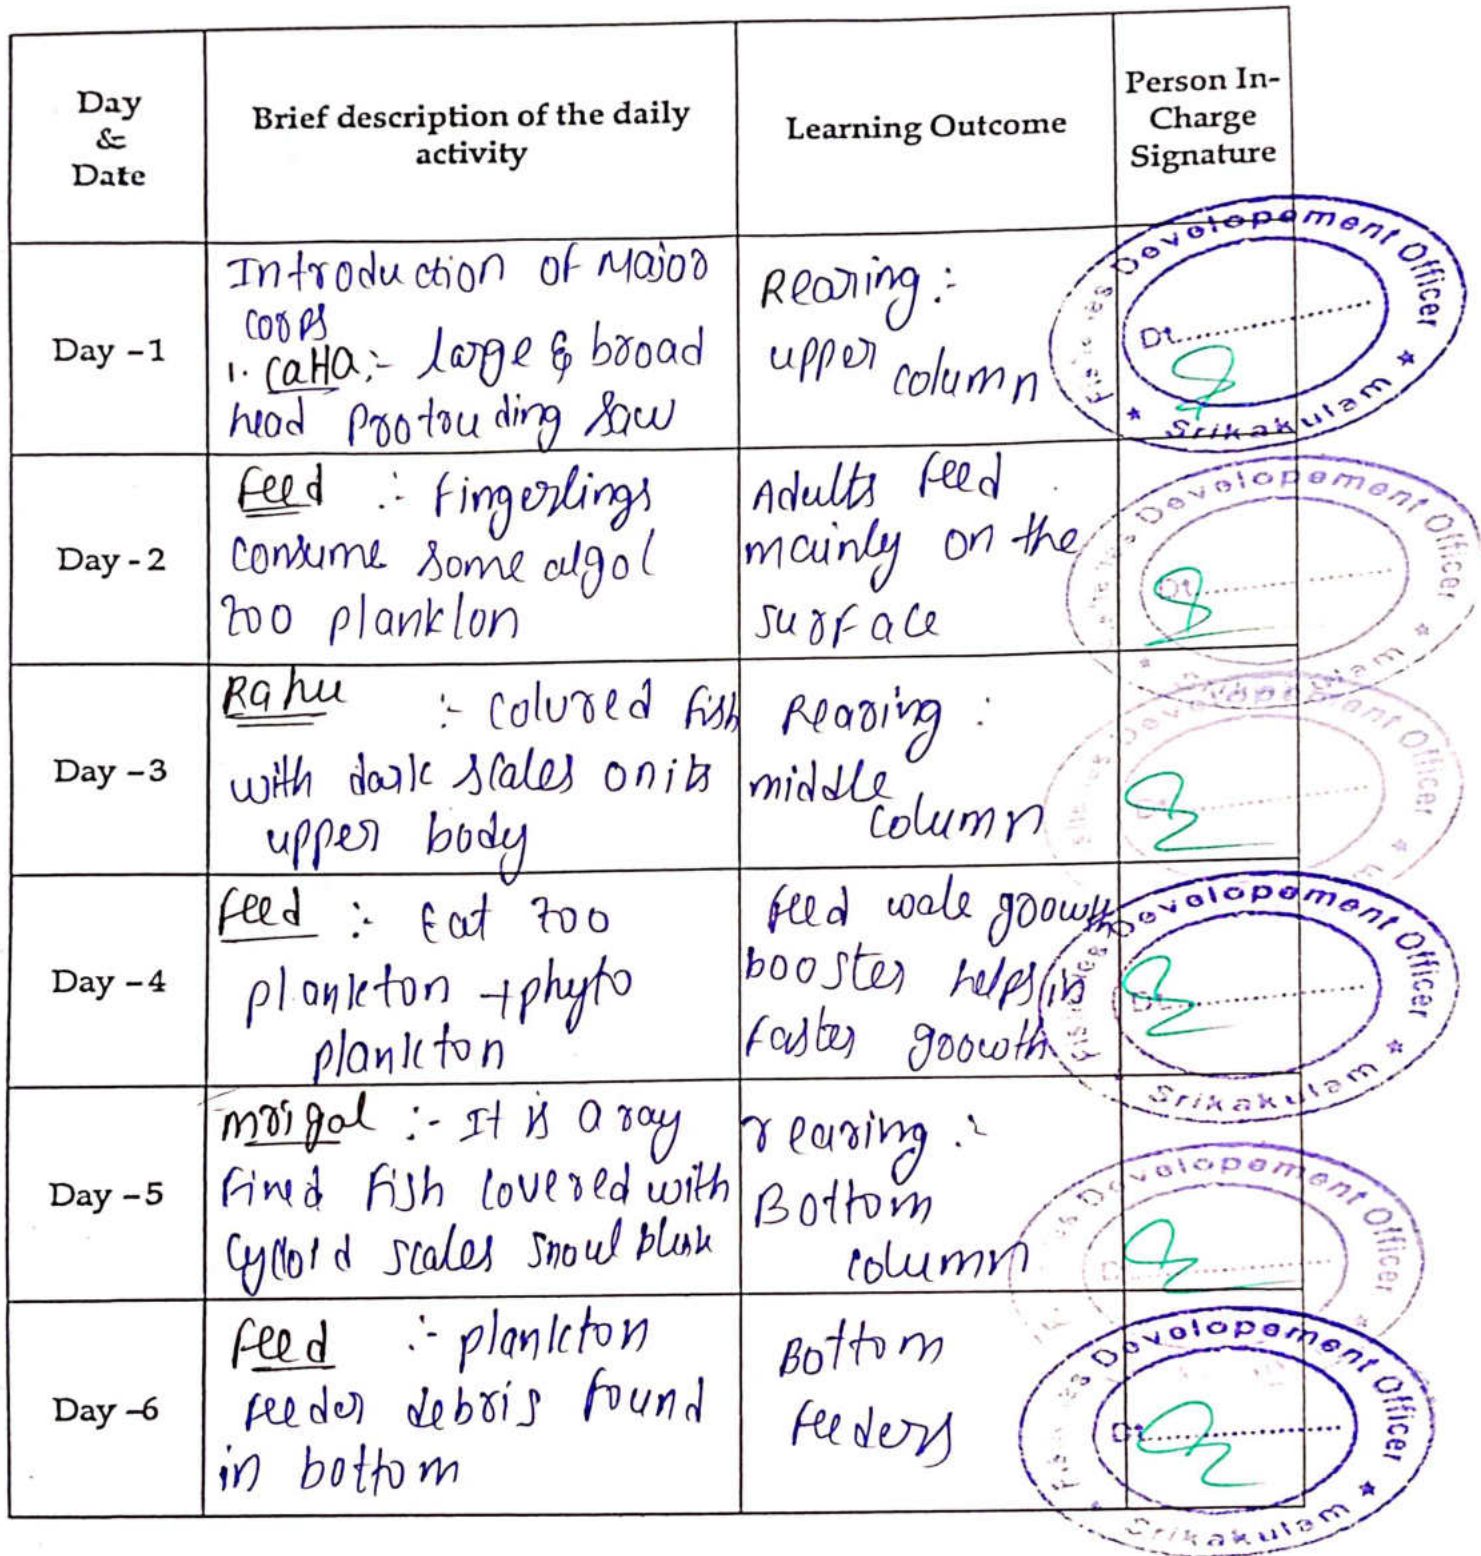 Day
&
Date
Brief description of the daily
activity
Learning Outcome
Person In-
Charge
Signature
Day -1
Introduction of Major
corps
1. CaHa:- large & broad
head Protruding Jaw
Rearing :-
upper column
Developement Officer
Dt..............
* Srikakulam *
Day - 2
Feed :- Fingerlings
consume some algol
zoo planklon
Adults feed
mainly on the
surface
Developement Officer
Dt..............
Day -3
Rahu :- Colured fish
with dark scales on its
upper body
Rearing :
middle
column
Officer
Day -4
Feed :- Eat zoo
plankton + phyto
plankton
feed wale growth
booster helps in
faster growth
Developement Officer
Srikakulam *
Day -5
mrigal :- It is a ray
fined fish covered with
Cycloid scales snout blunk
rearing :-
Bottom
column
Developement Officer
Day -6
Feed :- plankton
feeder debris found
in bottom
Bottom
feeders
Developement Officer
Dt..............
* Srikakulam *